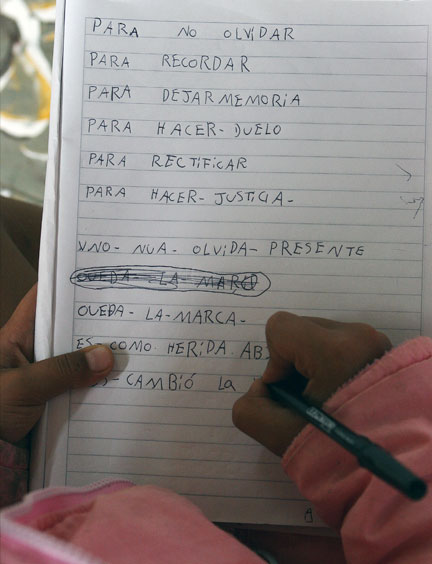 PARA NO OLVIDAR
PARA RECORDAR
PARA DEJAR MEMORIA
PARA HACER- DUELO
PARA RECTIFICAR
PARA HACER- JUSTICIA-
UNO- NUA- OLVIDA- PRESENTE
OUEDA- LA- MARCA
OUEDA- LA-MARCA-
ES- COMO. HERIDA. AB
CAMBIÓ LA